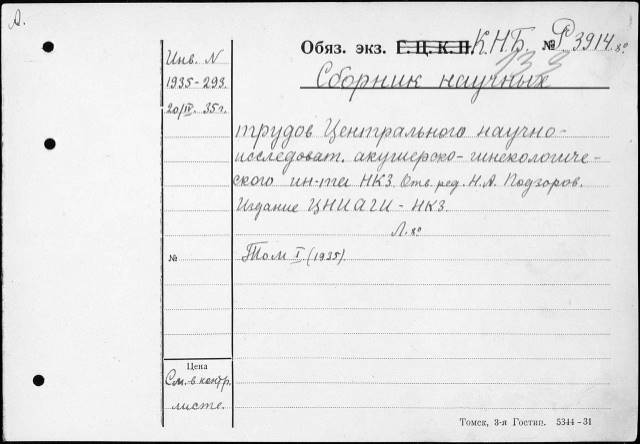 А.
Обяз. экз. Г.Ц.К.П. К.Н.Б. № Р 3914.8º
Инв. N
1935-293.
20/IV. 35г.
Сборник научных
трудов Центрального научно-
исследоват. акушерско-гинекологиче-
ского ин-та НКЗ. Отв. ред. Н.А. Подзоров.
Издание ЦНИАГИ - НКЗ.
Л. 8º
№
Том I. (1935).
Цена
См. в контр.
листе.
Томск, 3-я Гостип. 5344-31